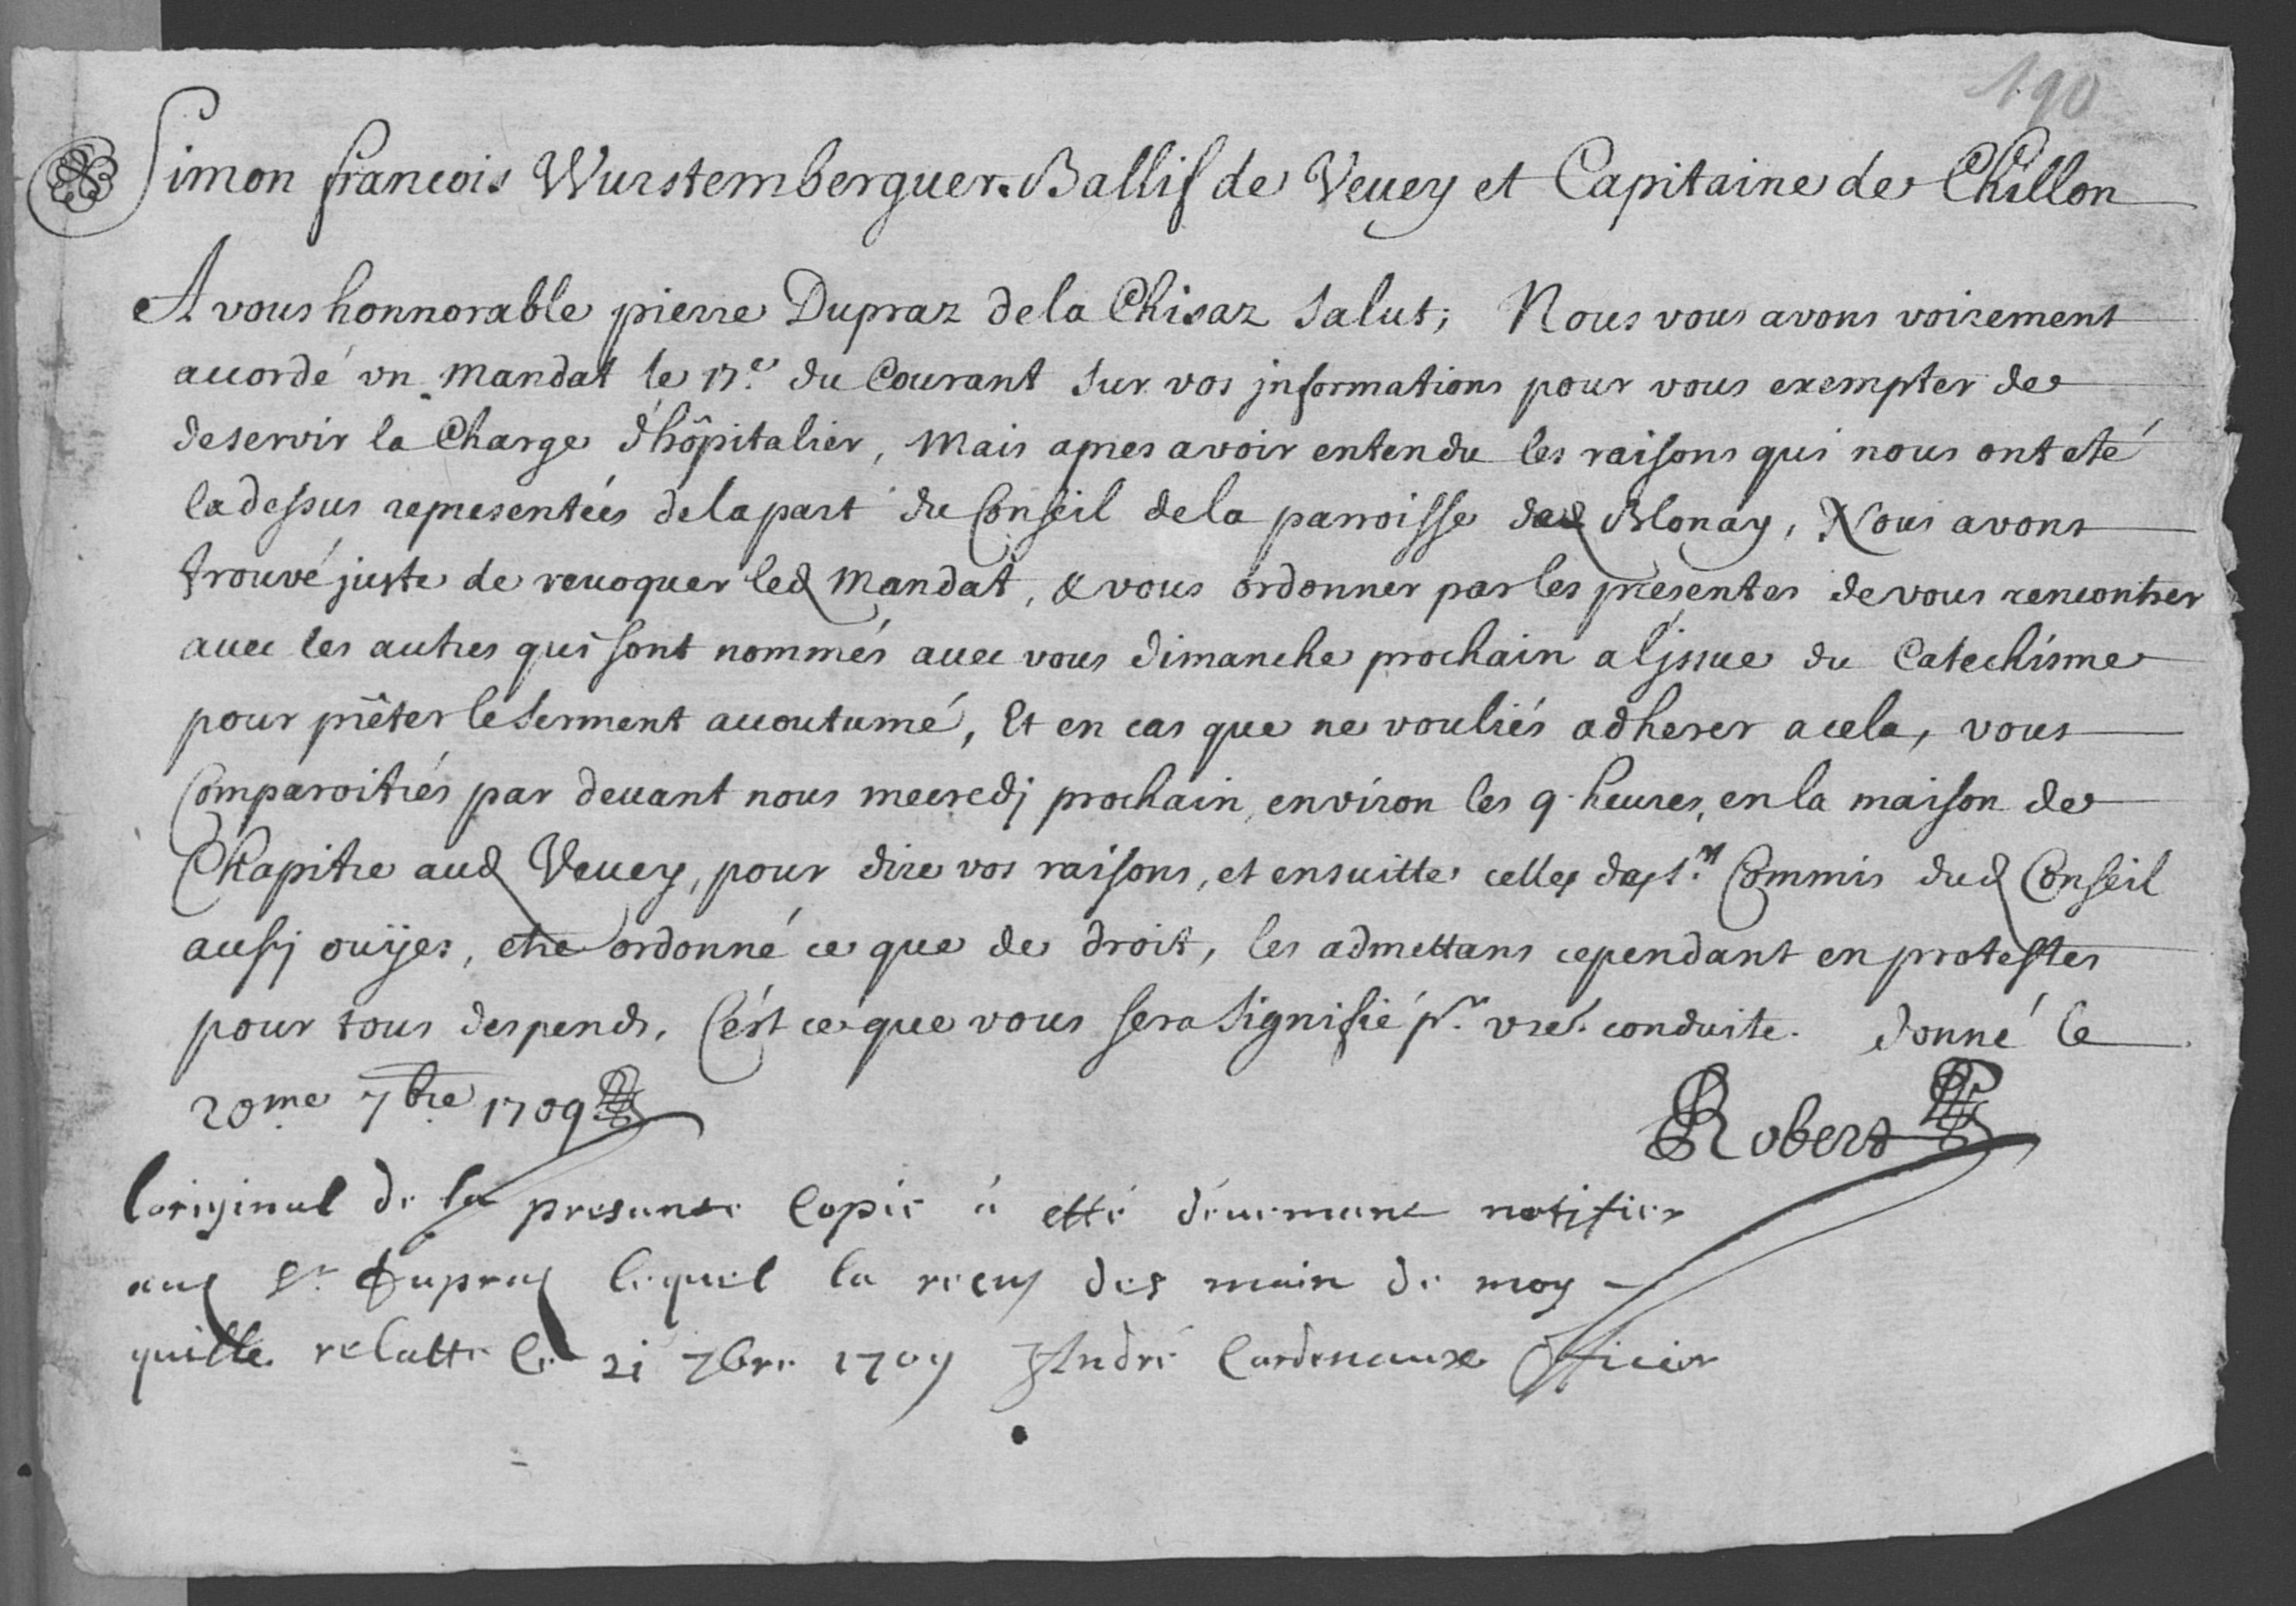 190
Simon francois Wurstemberguer. Ballif de Veuey et Capitaine de Chillon
A vous honnorable pierre Dupraz de la Chisaz Salut; Nous vous avons voirement
accordé vn mandat le 17.e du Courant Sur vos jnformations pour vous exempter de
deservir la Charge d'hôpitalier, Mais apres avoir entendu les raisons qui nous ont eté
la dessus representées de la part du Conseil de la parroisse de Blonay, Nous avons
trouvé juste de reuoquer led mandat, & vous ordonner par les presentes de vous rencontrer
auec les autres qui sont nommés auec vous dimanche prochain a l'jssue du Catechisme
pour prêter le Serment accoutumé, Et en cas que ne vouliés adherer a cela, vous
Comparoitrés par deuant nous mecredj prochain, environ les 9 heures, en la maison de
Chapitre aud Veuey, pour dire vos raisons, et ensuitte celles des Srs Commis dud Conseil
aussj ouÿes, etre ordonné ce que de droit, les admettans cependant en protestes
pour tous despends, C'est ce que vous sera Signifié pr. vre. conduite. donné le
20me 7bre 1709
Robert
loriginal de la presente Copie à etté deuemant notifier
aud Sr Dupraz lequel la recus des main de moy
quille relatte le 21 7bre 1709 André Cardenaux officier